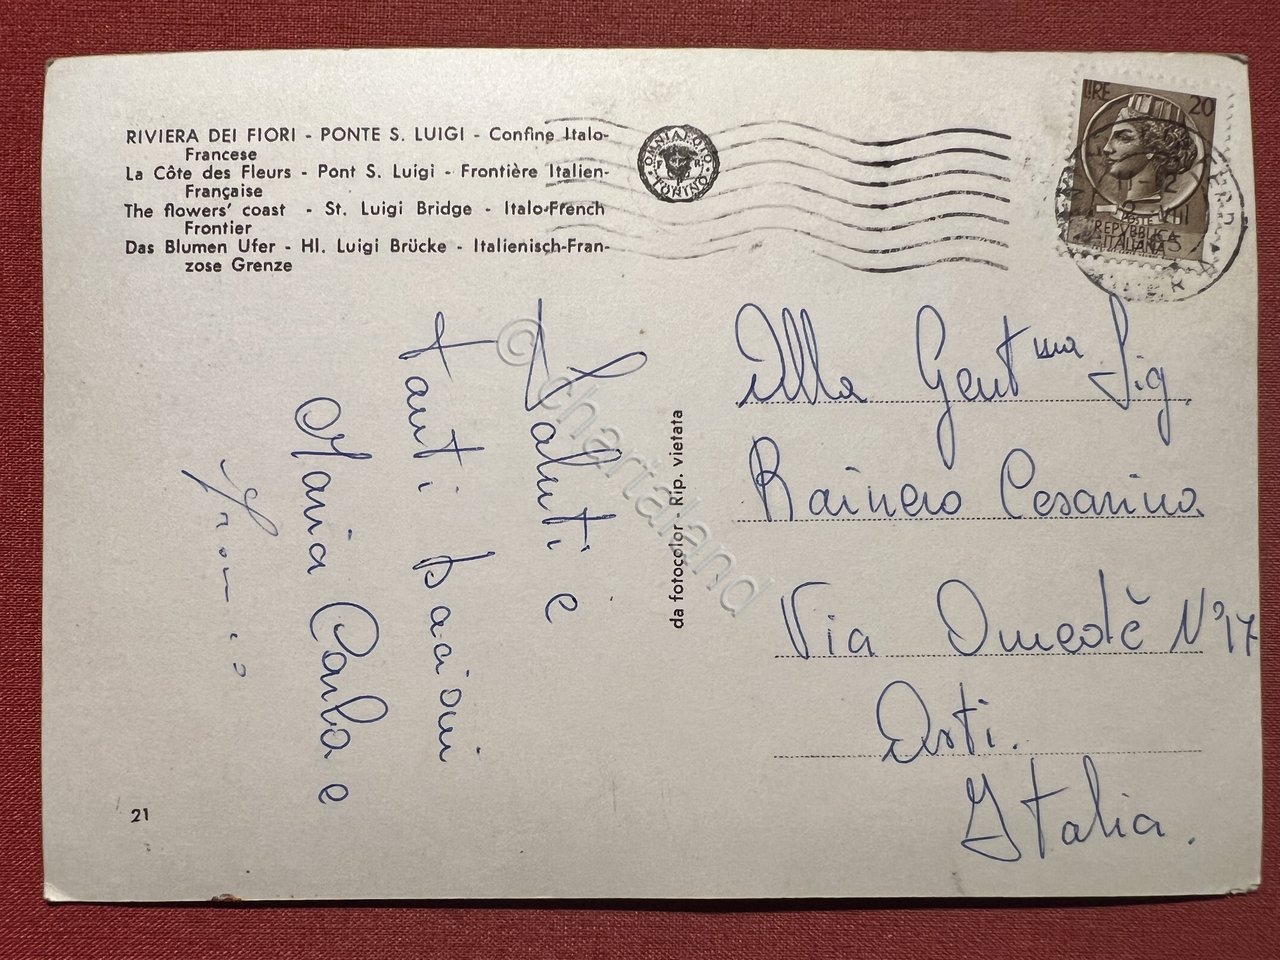 RIVIERA DEI FIORI - PONTE S. LUIGI - Confine Italo-
Francese
La Côte des Fleurs - Pont S. Luigi - Frontière Italien-
Française
The flowers' coast - St. Luigi Bridge - Italo-French
Frontier
Das Blumen Ufer - Hl. Luigi Brücke - Italienisch-Fran-
zose Grenze
OMNIAFOTO
TORINO
LIRE 20
POSTE
REPVBBLICA
ITALIANA
Saluti e
tanti bacioni
Maria Carla e
da fotocolor - Rip. vietata
© chartaland
Alla Gent ma Sig.
Rainero Cesarina
Via Omedè N° 17
Asti.
Italia.
21